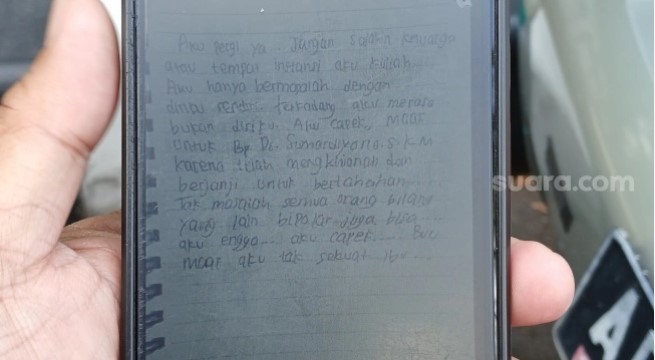 Aku pergi ya.. Jangan salahin keluarga
atau tempat instansi aku kuliah.
Aku hanya bermasalah dengan
diriku sendiri terkadang aku merasa
bukan diriku. Aku capek, Maaf
untuk Bp Dr. Sumardiyono, S.K.M
karena telah mengkhianati dan
berjanji untuk bertahan
Tak masalah semua orang bilang
yang lain bipolar juga bisa
aku engga... aku capek.... Bu
maaf aku tak sekuat ibu...
suara.com